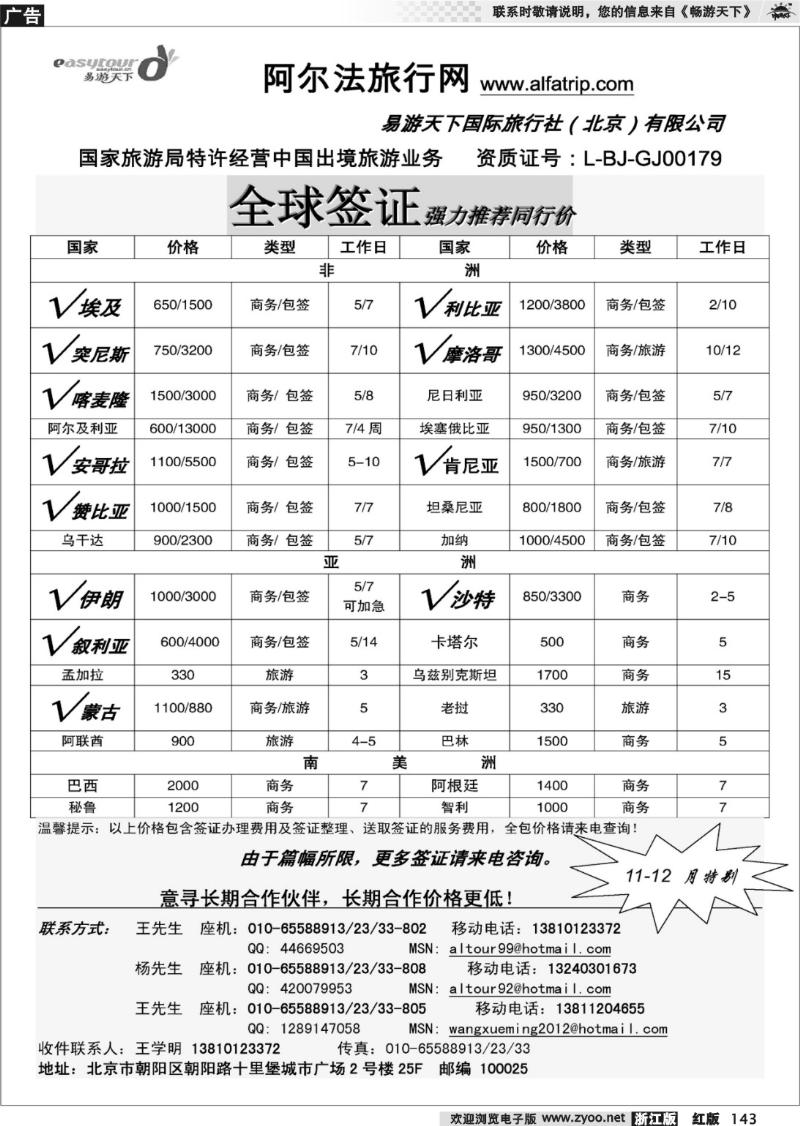 广告
联系时敬请说明，您的信息来自《畅游天下》
easytour
easytour.cn
易游天下
阿尔法旅行网 www.alfatrip.com
易游天下国际旅行社（北京）有限公司
国家旅游局特许经营中国出境旅游业务 资质证号：L-BJ-GJ00179
全球签证 强力推荐同行价
国家 价格 类型 工作日 国家 价格 类型 工作日
非 洲
√埃及 650/1500 商务/包签 5/7 √利比亚 1200/3800 商务/包签 2/10
√突尼斯 750/3200 商务/包签 7/10 √摩洛哥 1300/4500 商务/旅游 10/12
√喀麦隆 1500/3000 商务/ 包签 5/8 尼日利亚 950/3200 商务/包签 5/7
阿尔及利亚 600/13000 商务/ 包签 7/4 周 埃塞俄比亚 950/1300 商务/包签 7/10
√安哥拉 1100/5500 商务/ 包签 5-10 √肯尼亚 1500/700 商务/旅游 7/7
√赞比亚 1000/1500 商务/ 包签 7/7 坦桑尼亚 800/1800 商务/包签 7/8
乌干达 900/2300 商务/ 包签 5/7 加纳 1000/4500 商务/包签 7/10
亚 洲
√伊朗 1000/3000 商务/包签 5/7 可加急 √沙特 850/3300 商务 2-5
√叙利亚 600/4000 商务/包签 5/14 卡塔尔 500 商务 5
孟加拉 330 旅游 3 乌兹别克斯坦 1700 商务 15
√蒙古 1100/880 商务/旅游 5 老挝 330 旅游 3
阿联酋 900 旅游 4-5 巴林 1500 商务 5
南 美 洲
巴西 2000 商务 7 阿根廷 1400 商务 7
秘鲁 1200 商务 7 智利 1000 商务 7
温馨提示：以上价格包含签证办理费用及签证整理、送取签证的服务费用，全包价格请来电查询！
由于篇幅所限，更多签证请来电咨询。
11-12 月特别
意寻长期合作伙伴，长期合作价格更低！
联系方式： 王先生 座机：010-65588913/23/33-802 移动电话：13810123372
QQ: 44669503 MSN: altour99@hotmail.com
杨先生 座机：010-65588913/23/33-808 移动电话：13240301673
QQ: 420079953 MSN: altour92@hotmail.com
王先生 座机：010-65588913/23/33-805 移动电话：13811204655
QQ: 1289147058 MSN: wangxueming2012@hotmail.com
收件联系人：王学明 13810123372 传真：010-65588913/23/33
地址：北京市朝阳区朝阳路十里堡城市广场 2 号楼 25F 邮编 100025
欢迎浏览电子版 www.zyoo.net 浙江版 红版 143